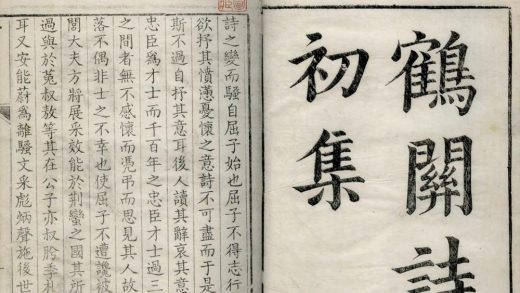 鶴關詩
初集
詩之變而騷自屈子始也屈子不得志行
欲抒其憤懣憂懷之意詩不可盡而于是
斯不過自抒其意耳後人讀其辭哀其意
忠臣爲才士而千百年之忠臣才士過三
之間者無不感懷而憑弔而思見其人故
落不偶非士之不幸也使屈子不遭讒被
閭大夫方將展采效能於荆蠻之國其所
過與於菟叔敖等其在公子亦叔肸季札
耳又安能蔚爲離騷文采彪炳聲施後世